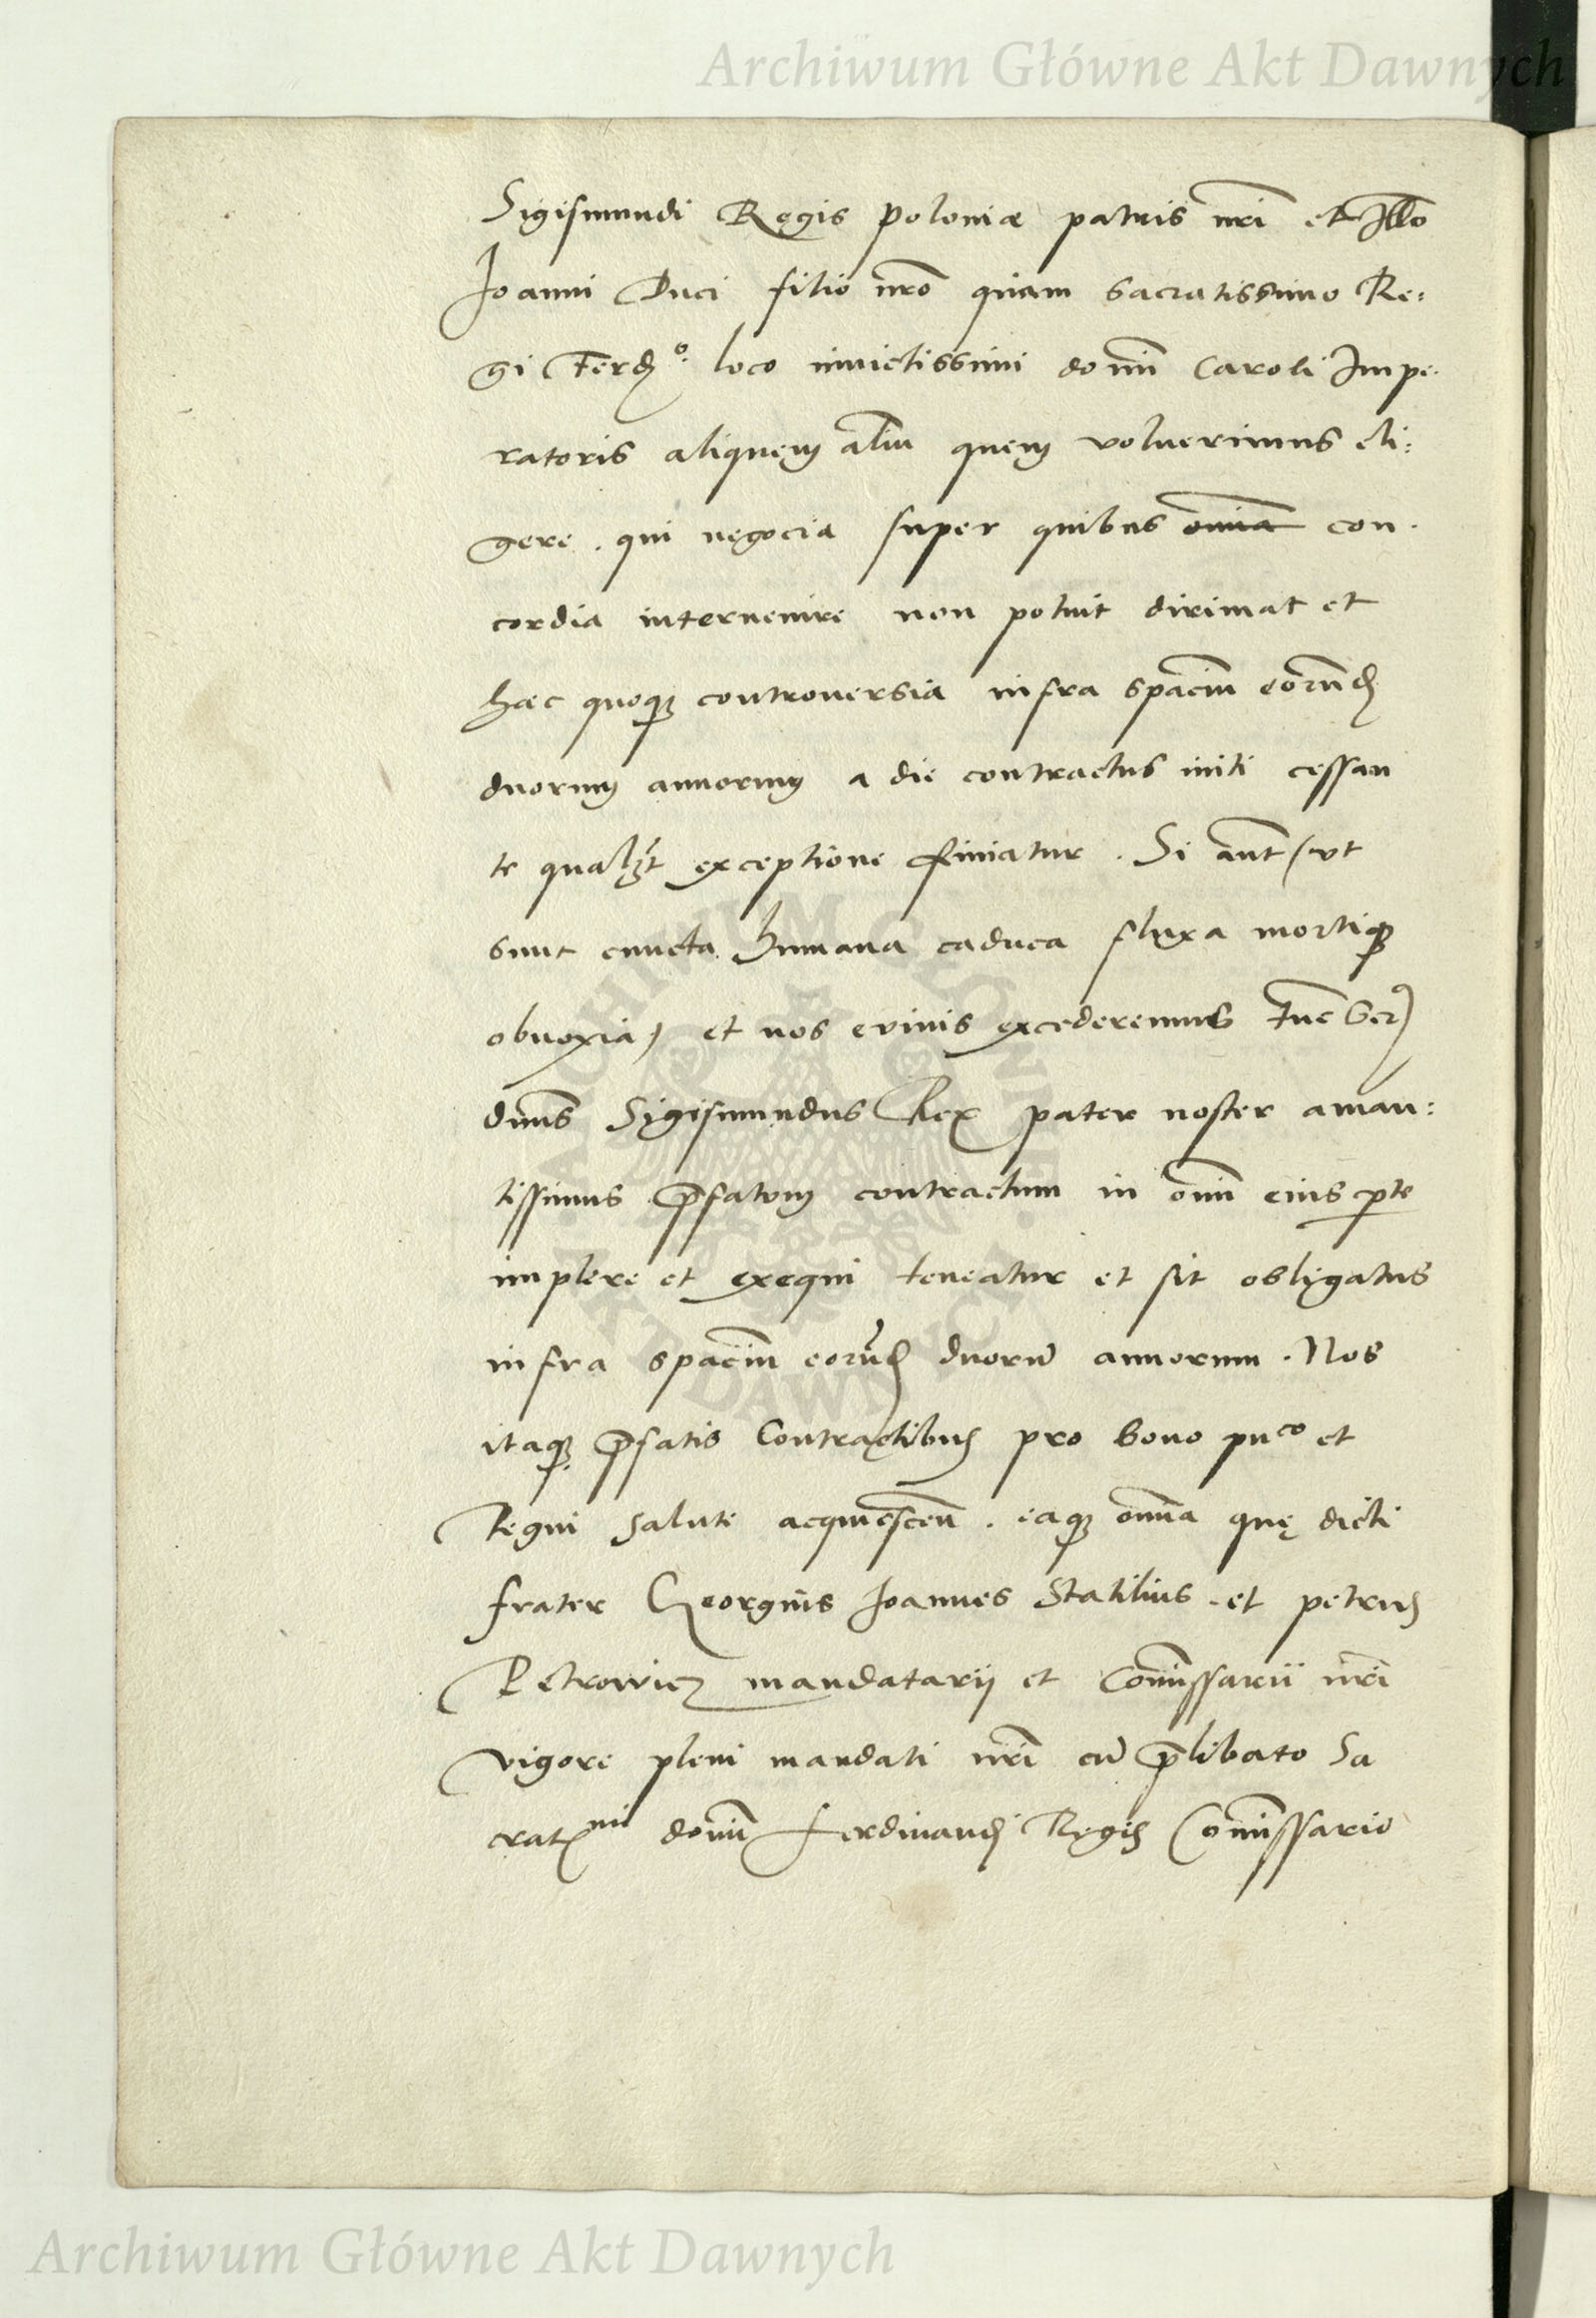 Archiwum Główne Akt Dawnych
Sigismundi Regis poloniæ patris nr̃i et Illo
Joanni Duci filio nr̃o quam sacratissimo Re:
gi Ferd.º loco inuictissimi domĩ Caroli Impe.
ratoris aliquem aliũ quem voluerimus eli:
gere. qui negocia super quibus om̃ia con.
cordia interuenire non potuit dirimat et
hæc quoq3 controuersia infra spaciũ eorund
duorum annorum a die contractus initi cessan
te qualit exceptione finiatur. Si aut̃ (vt
sunt cuncta humana caduca fluxa mortiq3
obnoxia) et nos e viuis excederemus tuñc
dñus Sigismundus Rex pater noster aman:
tissimus p̃fatum contractum in om̃i eius p̱te
implere et exequi teneatur et sit obligatus
infra spaciũ eorũd duorũ annorum. Nos
itaq3 p̃fatis Contractibus pro bono puco et
Regni salute acquiescen̄. eaq3 om̃ia quę dicti
frater Georgius Joannes Statilius. et petrus
Petrowicz mandatarij et Com̃issarii nr̃i
vigore pleni mandati nr̃i cũ p̃libato Sa
crat.mi domĩ Ferdinandi Regis Com̃issario
ARCHIWUM GŁÓWNE
AKT DAWNYCH
Archiwum Główne Akt Dawnych